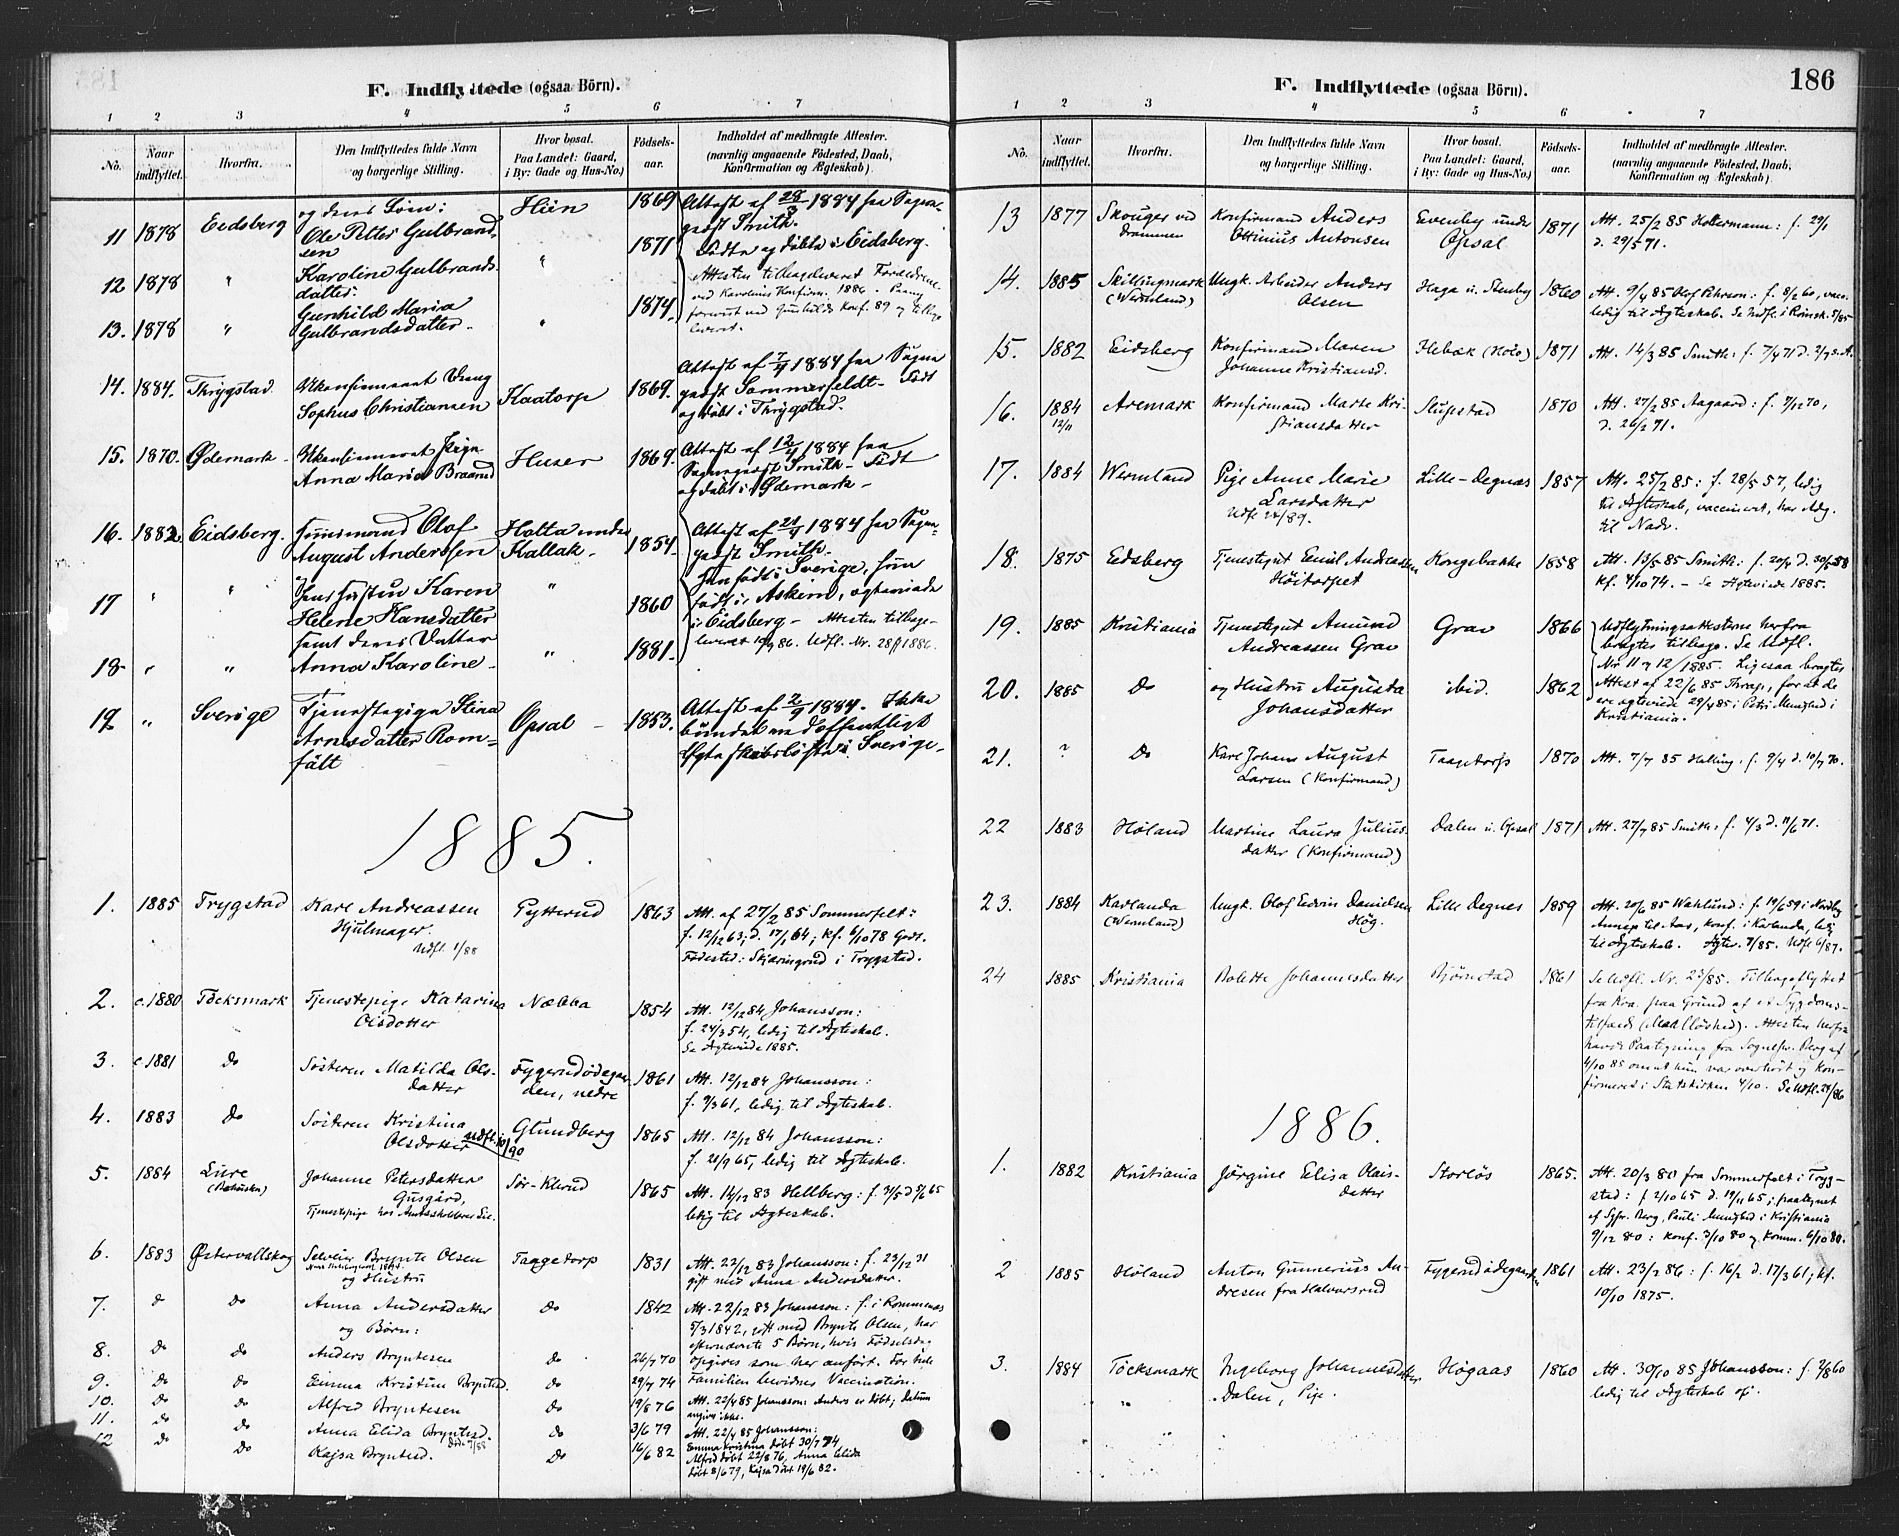 F. Indflyttede (ogsaa Börn).
1 2 3 4 5 6 7
No. Naar indflyttet. Hvorfra. Den Indflyttedes fulde Navn og borgerlige Stilling. Hvor bosat. Paa Landet: Gaard, i By: Gade og Hus-No.) Födselsaar. Indholdet af medbragte Attester. (navnlig angaaende Födested, Daab, Konfirmation og Ægteskab)
og deres Søn:
11 1878 Eidsberg Ole Petter Gulbrandsen Hiin 1869 Attest af 28/3 1884 fra Sogne-
præst Smith.
12 1878 " Karoline Gulbrands- " 1871 Fødte og døbte i Eidsberg.
datter. Attesten tilbageleveret Forældrene
ved Karolines Konfirm. 1886.
13. 1878 " Gunhild Maria " 1874.
Gulbrandsdatter.
14. 1884. Thrygstad. Ukonfirmeret Dreng Kaatorp 1869. Attest af 7/4 1884 fra Sogne-
Sophus Christiansen præst Sommerfeldt - Født
og døbt i Thrygstad.
15. 1870. Ødemark - Ukonfirmeret Pige Huser 1869. Attest af 12/4 1884 fra
Anna Maria Braarud Sogneprest Smith - Født
og døbt i Ødemark -
16. 1882 Eidsberg. Huusmand Olof Holta under 1854. Attest af 21/4 1884 fra Sogne-
August Anderssen Kallak - præst Smith.
17 " " Hans Hustru Karen " 1860 Han født i Sverige, hun
Helene Hansdatter født i Askim, ægteviede
samt deres Datter i Eidsberg - Attesten tilbage-
18- " " Anna Karoline - " 1881. leveret 86. Udfl. Nr. 28 1886.
19 " Sverige Tjenestepige Stina Opsal - 1853. Attest af 2/9 1884. Ikke
Arnesdatter Rom= bundet ved offentligt
fält Ægteskabsløfte i Sverige -
1885.
1. 1885 Trygstad Karl Andreassen Gytterud 1863 Att. af 27/2 85 Sommerfelt:
Hjulmager. f. 12/12 63; d. 17/1 64; kf. 6/10 78 Godt.
Udfl. 1/88 Fødested: Skjæringrud i Trygstad.
2. c. 1880 Töcksmark Tjenestepige Katarina Næbba 1854 Att. 12/12 84 Johansson:
Olsdotter f. 24/3 54, ledig til Ægteskab.
Se Ægteviede 1885.
3. c. 1881 do Søsteren Matilda Ols- Fygerudødegaar- 1861 Att. 12/12 84 Johansson:
datter den, nedre f. 9/3 61, ledig til Ægteskab.
4. 1883 do Søsteren Kristina Glundberg 1865 Att. 12/12 84 Johansson:
Olsdotter Udfl. 10/90 f. 21/9 65, ledig til Ægteskab.
5. 1884 Lure Johanne Petersdatter Sør-Klerud 1865 Att. 14/12 83 Hellberg: f. 3/5 d 5/6 65
(Bohuslen) Gusgård, ledig til Ægteskab.
Tjenestepige hos
6. 1883 Østervallskog Selveier Brynte Olsen Taagetorp 1831 Att. 22/12 83 Johansson: f. 23/12 31
og Hustru gift med Anna Andersdatter.
7. do do Anna Andersdatter do 1842 Att. 22/12 83 Johansson: f. i Rommenæs
og Børn: 5/3 1842, gift med Brynte Olsen, har
8. do do Anders Bryntesen do 26/7 70 efternævnte 5 Børn, hvis Fødselsdag
opgives som her anført. For hele
9. do do Emma Kristine Bryntesd. do 29/7 74 Familien bevidnes Vaccination.
10. do do Alfred Bryntesen do 19/8 76 Att. 22/4 85 Johansson: Anders er døbt; datum
angives ikke.
11. do do Anna Elida Bryntesd. do 3/6 79 Att. 22/4 85 Johansson:
Død 7/88 Emma Kristina døbt 30/7 74
12 do do Kajsa Bryntesd. do 16/6 82 Alfred døbt 22/8 76, Anna Elida
døbt 8/6 79, Kajsa døbt 19/6 82.
F. Indflyttede (ogsaa Börn).
186
1 2 3 4 5 6 7
No. Naar indflyttet. Hvorfra. Den Indflyttedes fulde Navn og borgerlige Stilling. Hvor bosat. Paa Landet: Gaard, i By: Gade og Hus-No.) Födselsaar. Indholdet af medbragte Attester. (navnlig angaaende Födested, Daab, Konfirmation og Ægteskab)
13 1877 Skouger ved Konfirmand Anders Evenby under 1871 Att. 25/2 85 Holtermann: f. 29/1
Drammen Ottinius Antonsen Opsal d. 29/5 71.
14. 1885 Skillingmark Ungk. Arbeider Anders Haga u. Stenby 1860 Att. 9/4 85 Olof Pehrson: f. 8/2 60, vacc.
(Wermland) Olsen ledig til Ægteskab. Se Udfl. i Römsk. 7/85
15. 1882 Eidsberg Konfirmand Maren Hebæk (Nolo) 1871 Att. 14/3 85 Smith: f. 7/4 71
Johanne Kristiansd.
16. 1884 Aremark Konfirmand Marte Kri- Slupstad 1870 Att. 27/2 85 Aagaard: f. 7/12 70,
12/11 stiansdatter d. 26/2 71.
17. 1884 Wermland Pige Anne Marie Lille-Degnæs 1857 Att. 25/2 85: f. 28/5 57, ledig
Larsdatter til Ægteskab, vaccineret, har Adg.
Udfl 24/89. til Nadv.
18. 1875 Edsberg Tjenestegut Emil Andreassen Kongsbakke 1858 Att. 13/5 85 Smith: f. 20/4 d. 30/5 58
Høitorpet kf. 4/10 74. - Se Ægteviede 1885.
19. 1885 Kristiania Tjenestegut Amund Grav 1866 Udflytningsattesterne herfra
Andreassen Grav bragtes tilbage. Se Udfl.
Nr. 11 og 12/1885. Ligesaa bragtes
20. 1885 do og Hustru Augusta ibid. 1862 Attest af 22/6 85 Thrap, for at de
Johansdatter ere ægteviede 29/4 85 i Petri Menighed i
Kristiania.
21. ? do Karl Johans August Taagetorp 1870 Att. 7/7 85 Halling, f. 9/4 d. 10/7 70.
Larsen (Konfirmand)
22 1883 Høland Martine Laura Julius- Dalen u. Opsal 1871 Att. 27/7 85 Smith: f. 4/3 d. 11/6 71.
datter (Konfirmand)
23. 1884 Karlanda Ungk. Olof Edvin Danielsen Lille Degnes 1859 Att. 20/6 85 Wahlund: f. 19/6 59 i Nordby
(Wermland) Høg. Annex til Aas, konf. i Karlanda, ledig
til Ægteskab. Ægtev. 7/85. Udfl 6/87.
24 1885 Kristiania Bolette Johannesdatter Bjørnstad 1861 Se Udfl. Nr. 23/85. Tilbageflyttet
fra Kra. paa Grund af et Sygdoms-
tilfælde (Madløshed). Attesten herfra
havde Paategning fra Sognepr. Berg af
4/10 85 om at hun var overhørt og kon-
firmeret i Statskirken 4/10. Se Udfl. 28/86
1886.
1. 1882 Kristiania Jørgine Elisa Olais- Storløs 1865. Att. 20/3 80 fra Sommerfelt i Tryg-
datter stad: f 2/10 65 d. 19/11 65; paategnet
af Sgpr. Berg, Pauli Menighed i Kristiania
9/12 80: konf. 3/10 80 og Komm. 6/10 80.
2 1885 Høland Anton Gunnerius An- Fygerudødegaarden 1861 Att. 23/2 86: f. 16/2 d. 17/3 61; kf.
dresen fra Halvorsrud 10/10 1875.
3. 1884 Töcksmark Ingeborg Johannesdatter Høgaas 1860 Att. 30/10 85 Johansson: f 7/8 60
" Dalen, Pige. ledig til Ægteskab